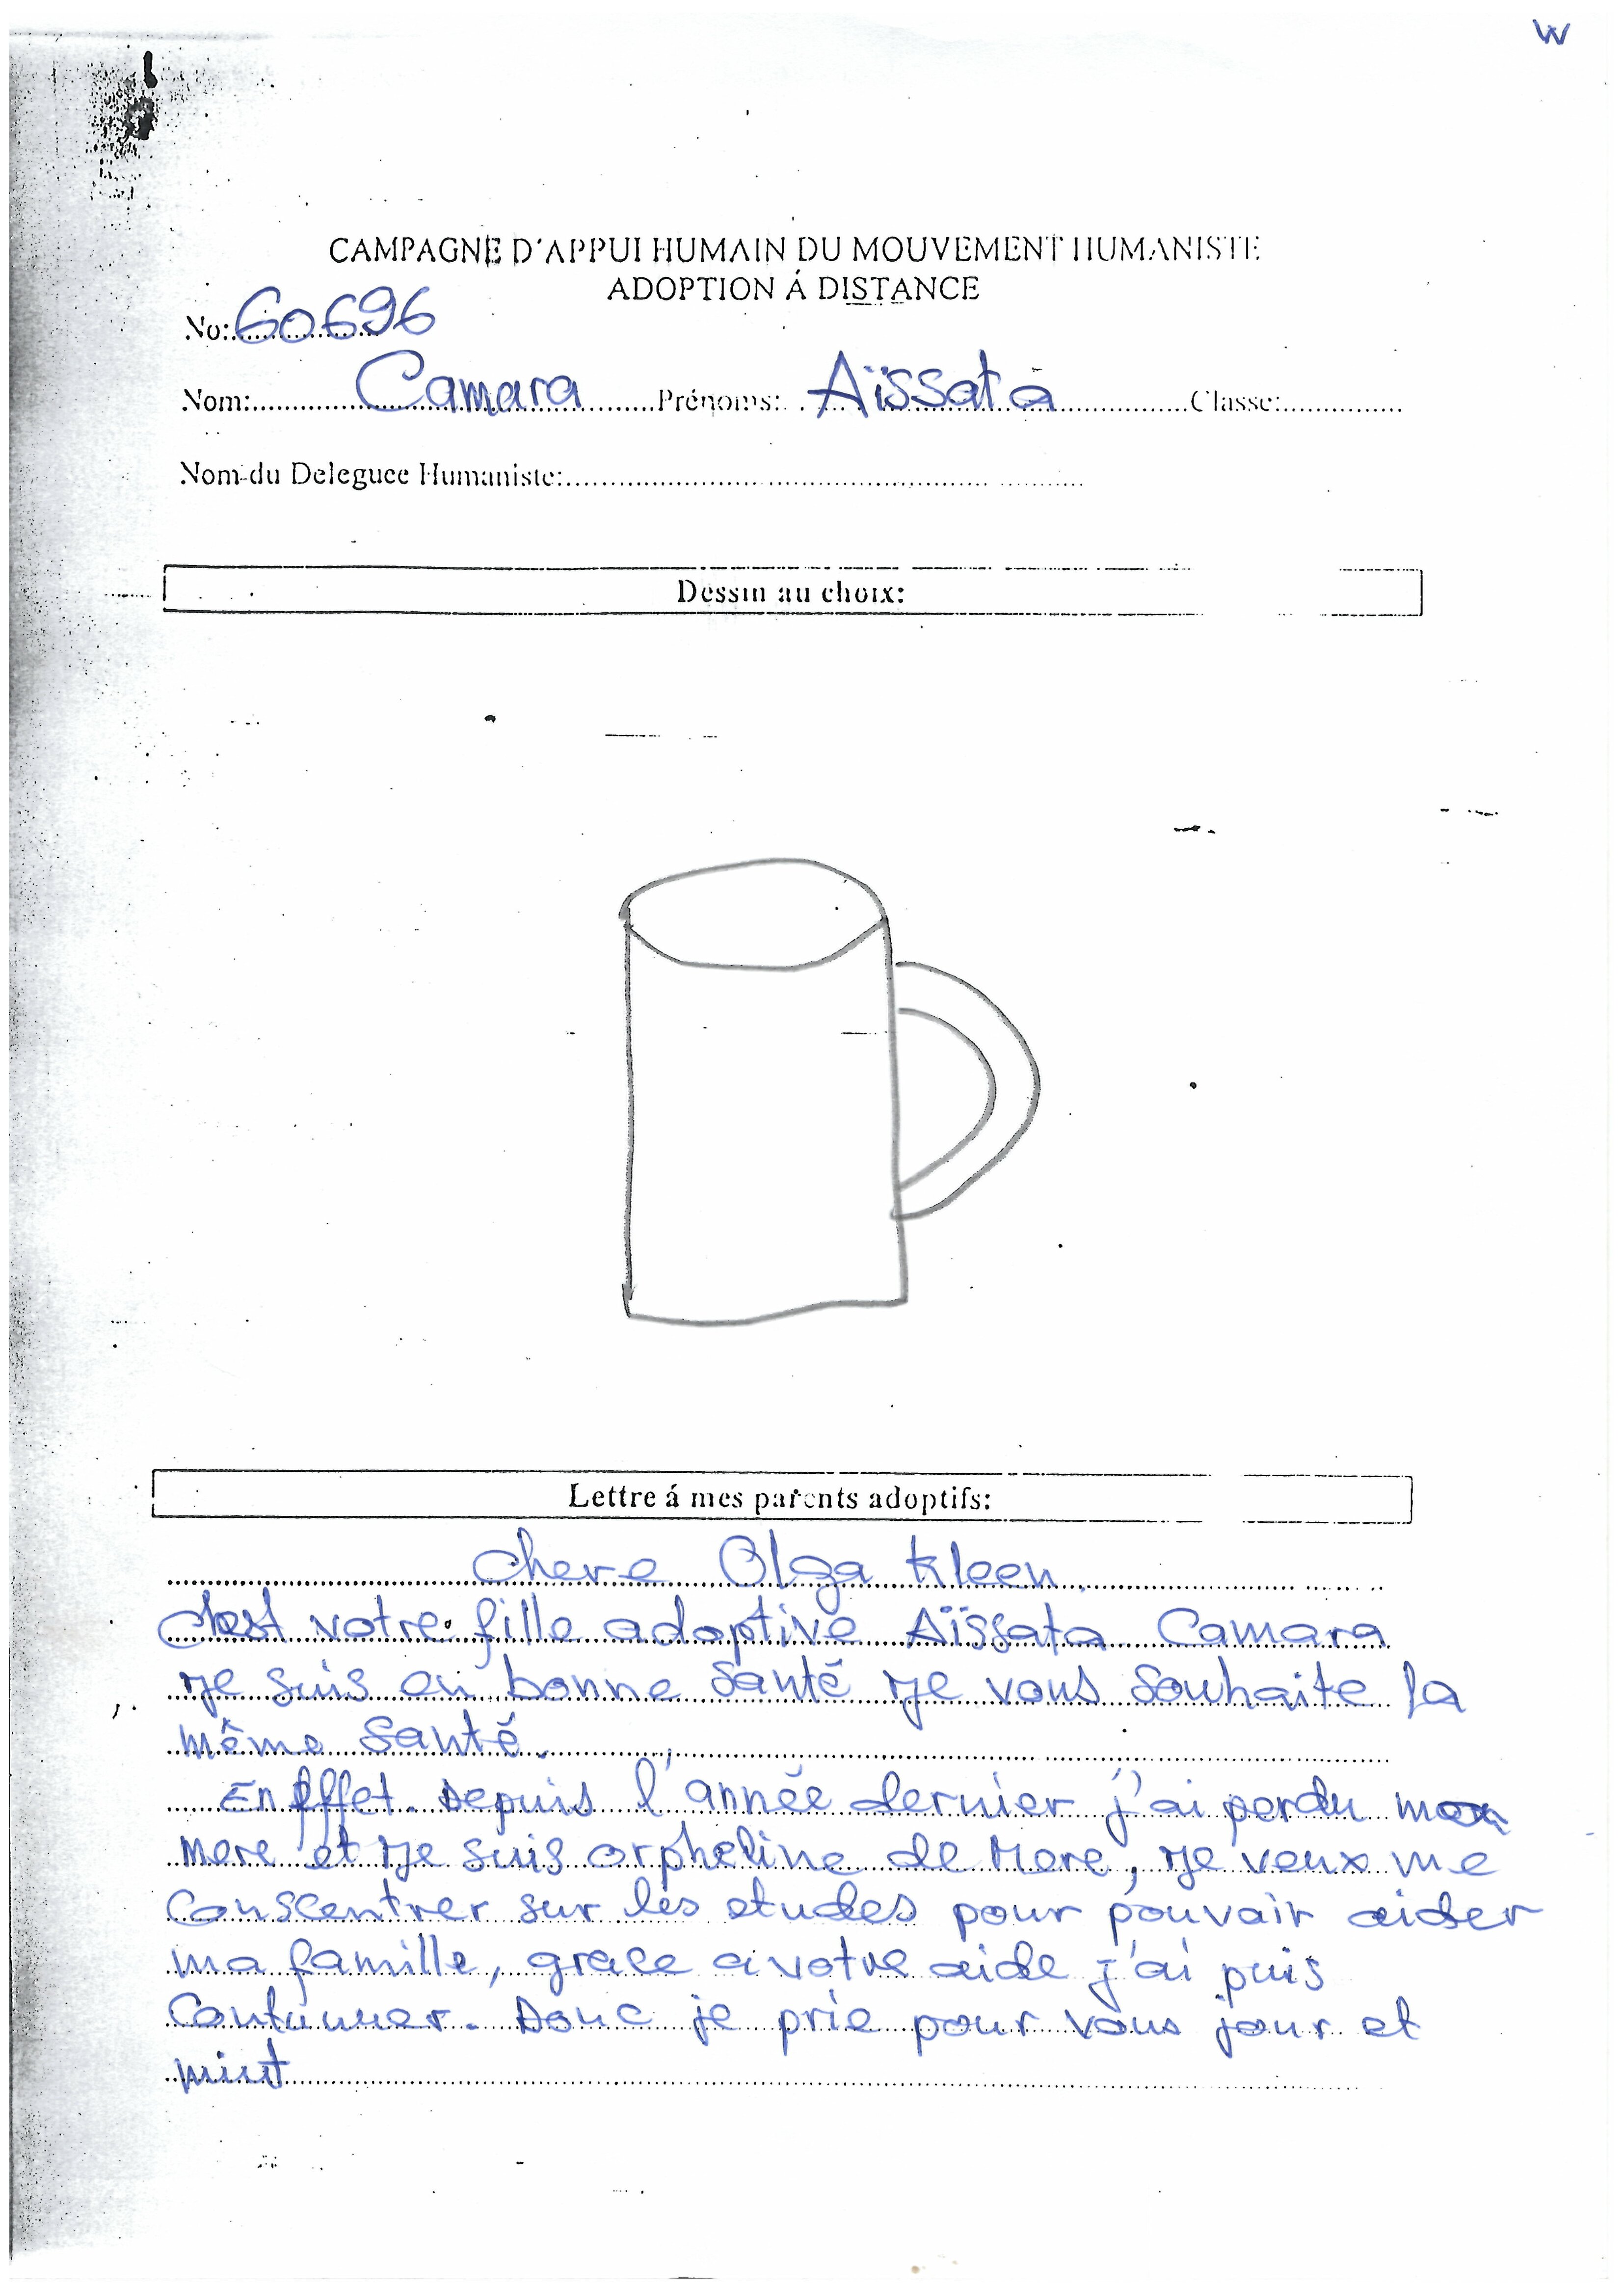 W
CAMPAGNE D'APPUI HUMAIN DU MOUVEMENT HUMANISTE
ADOPTION Á DISTANCE
No: 60696
Nom: Camara Prénoms: Aïssata Classe:
Nom du Deleguee Humaniste:
Dessin au choix:
Lettre á mes parents adoptifs:
chere Olga Kleen.
c'est votre fille adoptive Aïssata Camara
Je suis en bonne Santé Je vous Souhaite la
même Santé.
En effet. Depuis l'année dernier j'ai perdu
mere et Je suis orpheline de Mere, Je veux me
Conscentrer sur les etudes pour pouvair aider
ma famille, grace a votre aide j'ai puis
Contunuer. Donc je prie pour vous jour et
mint